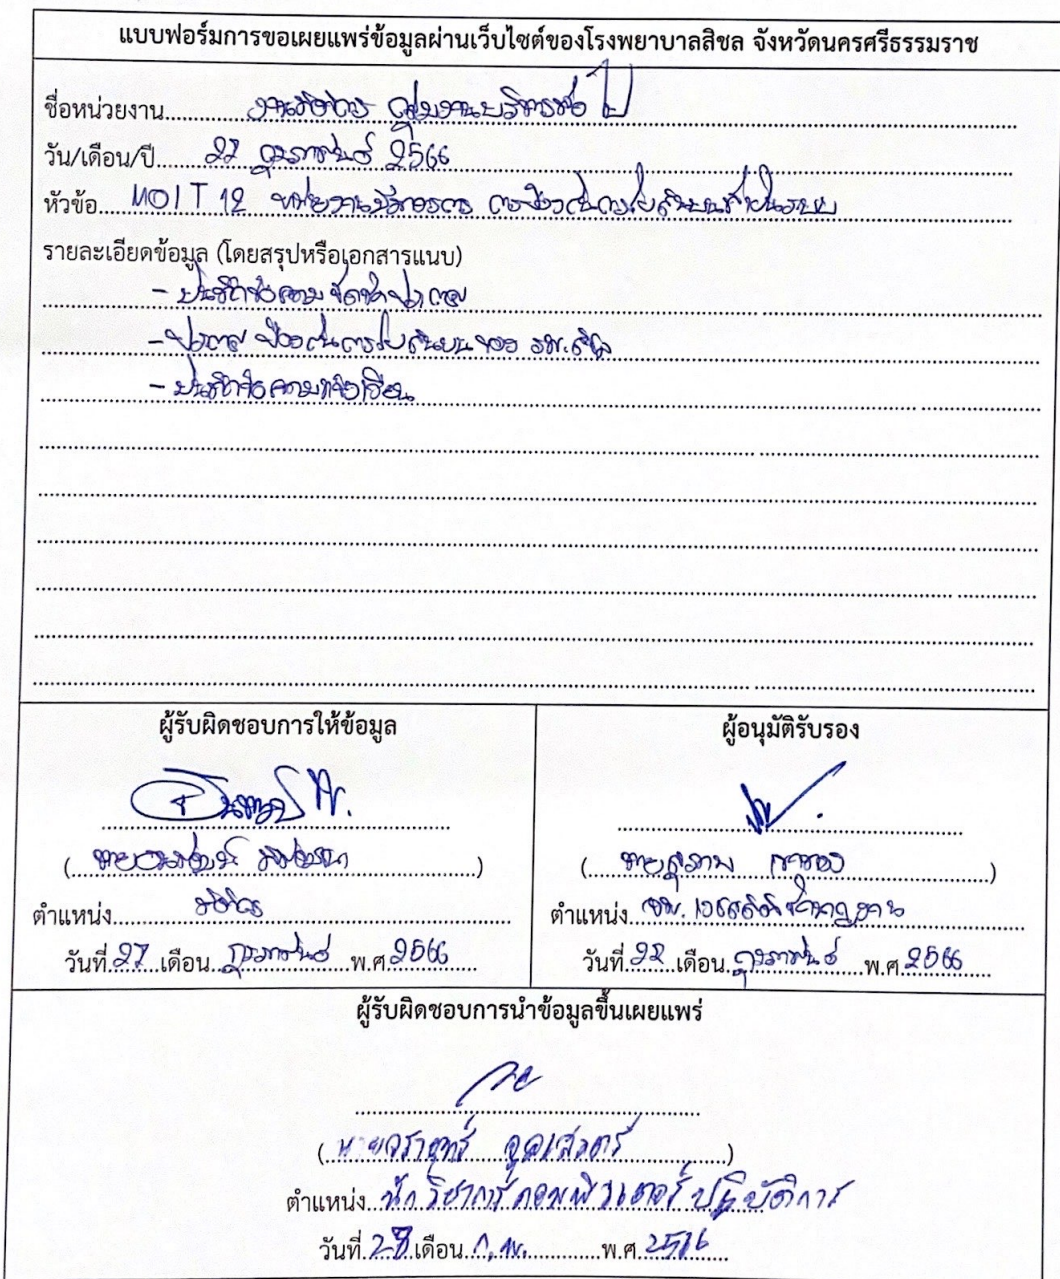 แบบฟอร์มการขอเผยแพร่ข้อมูลผ่านเว็บไซต์ของโรงพยาบาลสิชล จังหวัดนครศรีธรรมราช
ชื่อหน่วยงาน งานนิติการ กลุ่มงานบริหารทั่วไป
วัน/เดือน/ปี 27 กุมภาพันธ์ 2566
หัวข้อ MOIT 12 หน่วยงานมีมาตรการ การป้องกันการรับสินบนที่เป็นระบบ
รายละเอียดข้อมูล (โดยสรุปหรือเอกสารแนบ)
- บันทึกข้อความ จัดทำประกาศ
- ประกาศ ป้องกันการรับสินบน ของ รพ.สิชล
- บันทึกข้อความแจ้งเวียน
ผู้รับผิดชอบการให้ข้อมูล
( )
ตำแหน่ง นิติกร
วันที่ 27 เดือน กุมภาพันธ์ พ.ศ. 2566
ผู้อนุมัติรับรอง
( )
ตำแหน่ง
วันที่ เดือน กุมภาพันธ์ พ.ศ. 2566
ผู้รับผิดชอบการนำข้อมูลขึ้นเผยแพร่
( )
ตำแหน่ง นักวิชาการคอมพิวเตอร์ปฏิบัติการ
วันที่ เดือน ก.พ. พ.ศ. 2566